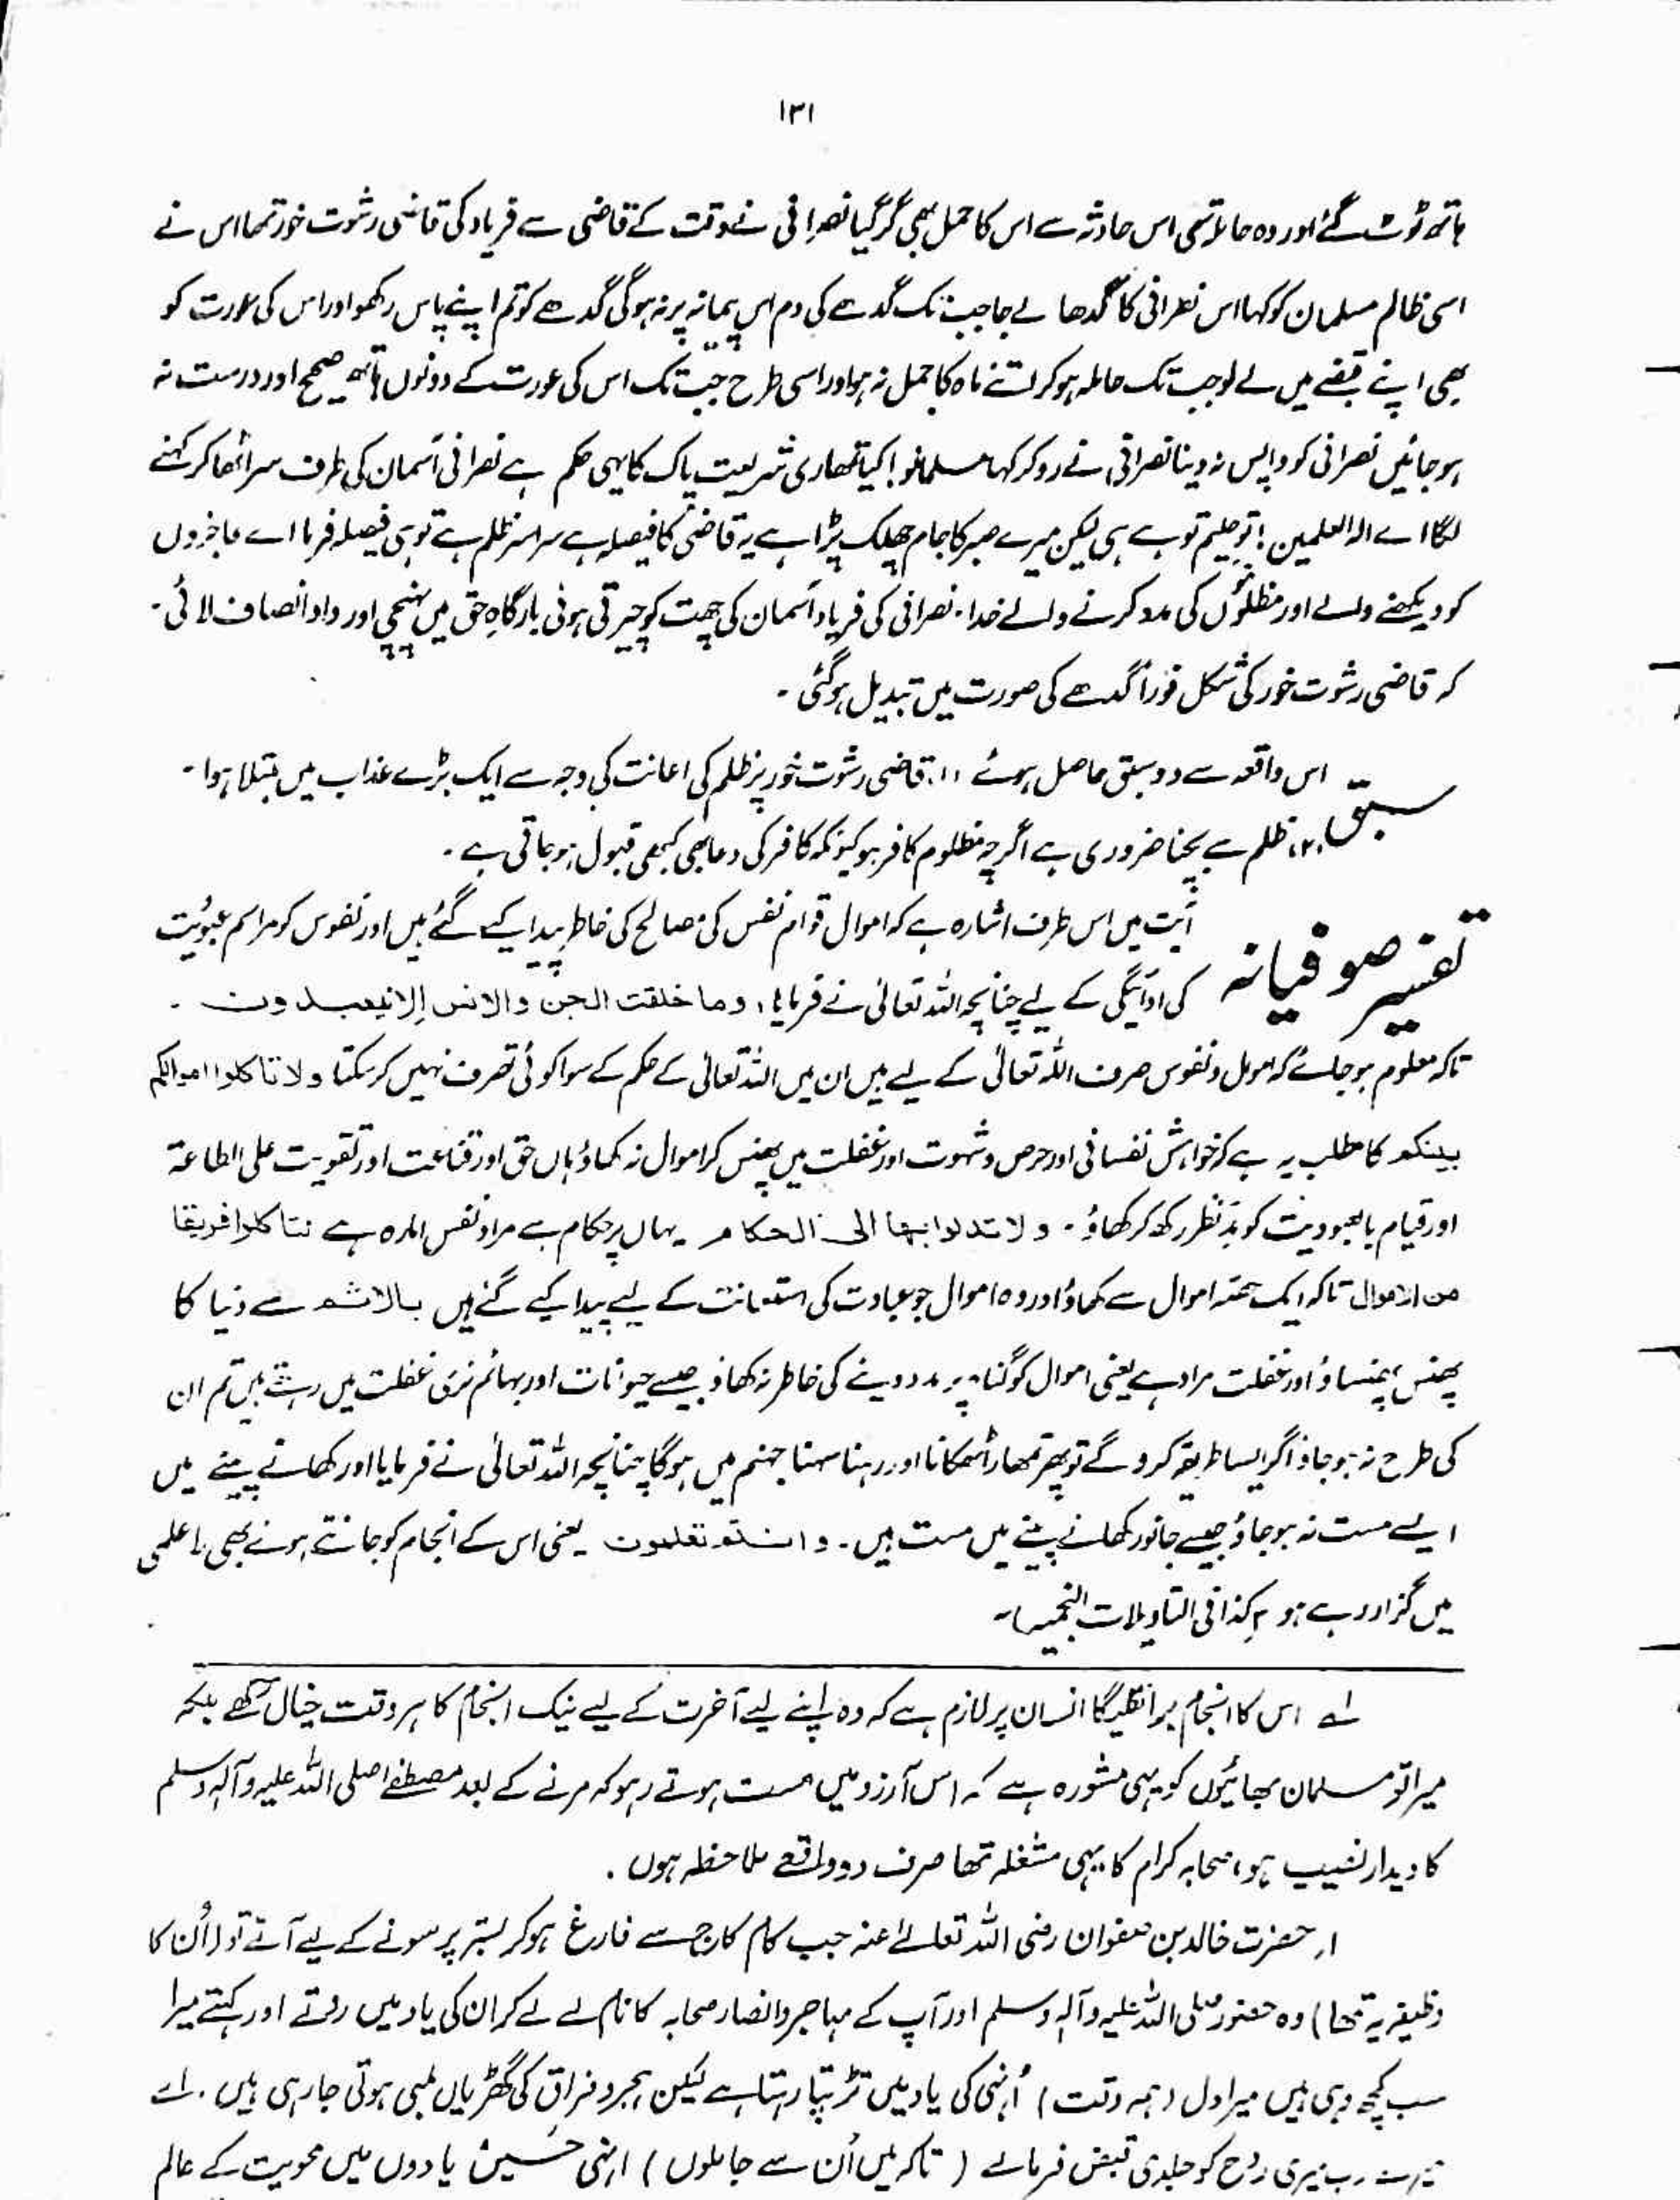 ۱۳۱
ہاتھ ٹوٹ گئے اور وہ حاملہ تھی اس حادثہ سے اس کا حمل بھی گر گیا نصرانی نے وقت کے قاضی سے فریاد کی قاضی رشوت خور تھا اس نے
اسی ظالم مسلمان کو کہا اس نصرانی کا گدھا لے جا جب تک گدھے کی دم اس پیمانہ پر نہ ہوگی گدھے کو تم اپنے پاس رکھو اور اس کی عورت کو
بھی اپنے قبضے میں لے لو جب تک حاملہ ہو کر اتنے ماہ کا حمل نہ ہو اور اسی طرح جب تک اس کی عورت کے دونوں ہاتھ صحیح اور درست نہ
ہو جائیں نصرانی کو واپس نہ دینا نصرانی نے رو کر کہا مسلمانو! کیا تمھاری شریعت پاک کا یہی حکم ہے نصرانی آسمان کی طرف سر اٹھا کر کہنے
لگا اے الٰہ العلمین! تو حلیم تو ہے ہی لیکن میرے صبر کا جام چھلک پڑا ہے یہ قاضی کا فیصلہ ہے سراسر ظلم ہے تو ہی فیصلہ فرما اے عاجزوں
کو دیکھنے والے اور مظلوموں کی مدد کرنے والے خدا۔ نصرانی کی فریاد آسمان کی چھت کو چیرتی ہوئی بارگاہِ حق میں پہنچی اور داد انصاف لائی۔
کہ قاضی رشوت خور کی شکل فوراً گدھے کی صورت میں تبدیل ہو گئی۔
سبق اس واقعہ سے دو سبق حاصل ہوئے ۱۔ قاضی رشوت خور پر ظلم کی اعانت کی وجہ سے ایک بڑے عذاب میں مبتلا ہوا۔
۲۔ ظلم سے بچنا ضروری ہے اگرچہ مظلوم کافر ہو کیونکہ کافر کی دعا بھی کبھی قبول ہو جاتی ہے۔
تفسیر صوفیانہ آیت میں اس طرف اشارہ ہے کہ اموال قوام نفس کی مصالح کی خاطر پیدا کیے گئے ہیں اور نفوس کو مراسم عبودیت
کی ادائیگی کے لیے چنانچہ اللہ تعالیٰ نے فرمایا، وما خلقت الجن والانس الا لیعبدون۔
تاکہ معلوم ہو جائے کہ اموال و نفوس صرف اللہ تعالیٰ کے لیے ہیں ان میں اللہ تعالیٰ کے حکم کے سوا کوئی تصرف نہیں کر سکتا ولا تاکلوا اموالکم
بینکم کا مطلب یہ ہے کہ خواہش نفسانی اور حرص و شہوت اور غفلت میں پھنس کر اموال نہ کھاؤ ہاں حق اور قناعت اور تقویت علی الطاعۃ
اور قیام بالعبودیت کو مدنظر رکھ کر کھاؤ۔ ولا تدلوا بھا الی الحکام یہاں پر حکام سے مراد نفس امارہ ہے لتاکلوا فریقا
من الاموال تاکہ ایک حصہ اموال سے کھاؤ اور وہ اموال جو عبادت کی استعانت کے لیے پیدا کیے گئے ہیں بالاثم سے دنیا کا
پھنس پھنساؤ اور غفلت مراد ہے یعنی اموال کو گناہ پر مدد دینے کی خاطر نہ کھاؤ جیسے حیوانات اور بہائم نری غفلت میں رہتے ہیں تم ان
کی طرح نہ ہو جاؤ اگر ایسا طریقہ کرو گے تو پھر تمھارا ٹھکانا اور رہنا سہنا جہنم میں ہوگا چنانچہ اللہ تعالیٰ نے فرمایا اور کھانے پینے میں
ایسے مست نہ ہو جاؤ جیسے جانور کھانے پینے میں مست ہیں۔ وانتم تعلمون یعنی اس کے انجام کو جانتے ہوئے بھی لاعلمی
میں گزار رہے ہو کذا فی التاویلات النجمیہ
لے اس کا انجام برا نکلیگا انسان پر لازم ہے کہ وہ اپنے لیے آخرت کے لیے نیک انجام کا ہر وقت خیال رکھے بلکہ
میرا تو مسلمان بھائیوں کو یہی مشورہ ہے کہ اس آرزو میں مست ہوتے رہو کہ مرنے کے بعد مصطفےٰ صلی اللہ علیہ وآلہ وسلم
کا دیدار نصیب ہو، صحابہ کرام کا یہی مشغلہ تھا صرف دو واقعے ملاحظہ ہوں۔
۱۔ حضرت خالد بن صفوان رضی اللہ تعالےٰ عنہ جب کام کاج سے فارغ ہو کر بستر پر سونے کے لیے آتے تو (اُن کا
وظیفہ یہ تھا) وہ حضور صلی اللہ علیہ وآلہ وسلم اور آپ کے مہاجر و انصار صحابہ کا نام لے لے کر ان کی یاد میں روتے اور کہتے میرا
سب کچھ وہی ہیں میرا دل (ہمہ وقت) اُنہی کی یاد میں تڑپتا رہتا ہے لیکن ہجر و فراق کی گھڑیاں لمبی ہوتی جا رہی ہیں۔ اے
میرے رب میری روح کو جلدی قبض فرمالے (تاکہ میں اُن سے جا ملوں) انہی حسین یادوں میں محویت کے عالم